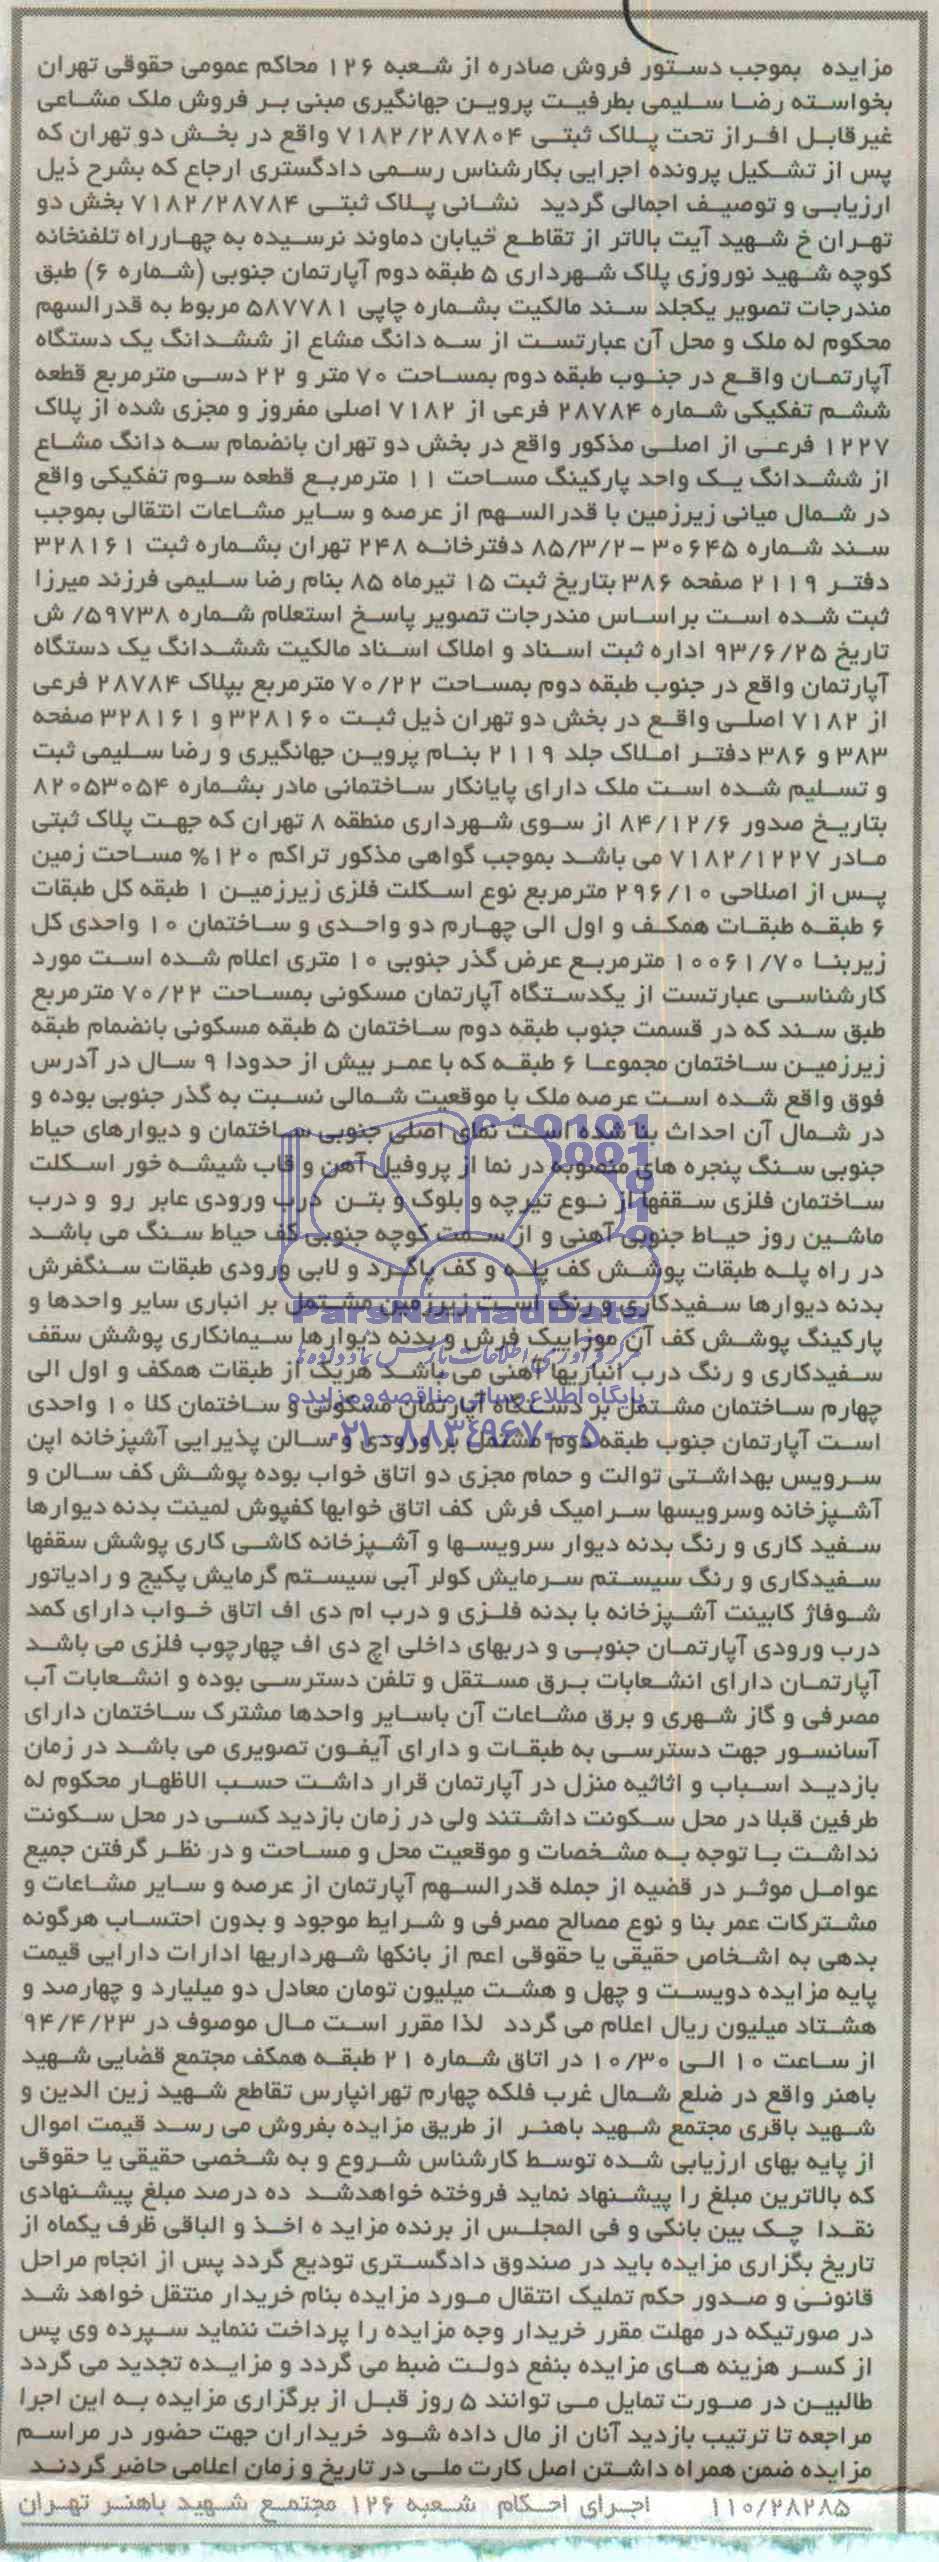 مزایده بموجب دستور فروش صادره از شعبه ۱۲۶ محاکم عمومی حقوقی تهران
بخواسته رضا سلیمی بطرفیت پروین جهانگیری مبنی بر فروش ملک مشاعی
غیرقابل افراز تحت پلاک ثبتی ۷۱۸۲/۲۸۷۸۰۴ واقع در بخش دو تهران که
پس از تشکیل پرونده اجرایی بکارشناس رسمی دادگستری ارجاع که بشرح ذیل
ارزیابی و توصیف اجمالی گردید نشانی پلاک ثبتی ۷۱۸۲/۲۸۷۸۴ بخش دو
تهران خ شهید آیت بالاتر از تقاطع خیابان دماوند نرسیده به چهارراه تلفنخانه
کوچه شهید نوروزی پلاک شهرداری ۵ طبقه دوم آپارتمان جنوبی (شماره ۶) طبق
مندرجات تصویر یکجلد سند مالکیت بشماره چاپی ۵۸۷۷۸۱ مربوط به قدرالسهم
محکوم له ملک و محل آن عبارتست از سه دانگ مشاع از ششدانگ یک دستگاه
آپارتمان واقع در جنوب طبقه دوم بمساحت ۷۰ متر و ۲۲ دسی مترمربع قطعه
ششم تفکیکی شماره ۲۸۷۸۴ فرعی از ۷۱۸۲ اصلی مفروز و مجزی شده از پلاک
۱۲۲۷ فرعی از اصلی مذکور واقع در بخش دو تهران بانضمام سه دانگ مشاع
از ششدانگ یک واحد پارکینگ مساحت ۱۱ مترمربع قطعه سوم تفکیکی واقع
در شمال میانی زیرزمین با قدرالسهم از عرصه و سایر مشاعات انتقالی بموجب
سند شماره ۳۰۶۴۵ -۸۵/۳/۲ دفترخانه ۲۴۸ تهران بشماره ثبت ۳۲۸۱۶۱
دفتر ۲۱۱۹ صفحه ۳۸۶ بتاریخ ثبت ۱۵ تیرماه ۸۵ بنام رضا سلیمی فرزند میرزا
ثبت شده است براساس مندرجات تصویر پاسخ استعلام شماره ۵۹۷۳۸/ ش
تاریخ ۹۳/۶/۲۵ اداره ثبت اسناد و املاک اسناد مالکیت ششدانگ یک دستگاه
آپارتمان واقع در جنوب طبقه دوم بمساحت ۷۰/۲۲ مترمربع بپلاک ۲۸۷۸۴ فرعی
از ۷۱۸۲ اصلی واقع در بخش دو تهران ذیل ثبت ۳۲۸۱۶۰ و ۳۲۸۱۶۱ صفحه
۳۸۳ و ۳۸۶ دفتر املاک جلد ۲۱۱۹ بنام پروین جهانگیری و رضا سلیمی ثبت
و تسلیم شده است ملک دارای پایانکار ساختمانی مادر بشماره ۸۲۰۵۳۰۵۴
بتاریخ صدور ۸۴/۱۲/۶ از سوی شهرداری منطقه ۸ تهران که جهت پلاک ثبتی
مادر ۷۱۸۲/۱۲۲۷ می باشد بموجب گواهی مذکور تراکم ۱۲۰% مساحت زمین
پس از اصلاحی ۲۹۶/۱۰ مترمربع نوع اسکلت فلزی زیرزمین ۱ طبقه کل طبقات
۶ طبقه طبقات همکف و اول الی چهارم دو واحدی و ساختمان ۱۰ واحدی کل
زیربنا ۱۰۰۶۱/۷۰ مترمربع عرض گذر جنوبی ۱۰ متری اعلام شده است مورد
کارشناسی عبارتست از یکدستگاه آپارتمان مسکونی بمساحت ۷۰/۲۲ مترمربع
طبق سند که در قسمت جنوب طبقه دوم ساختمان ۵ طبقه مسکونی بانضمام طبقه
زیرزمین ساختمان مجموعا ۶ طبقه که با عمر بیش از حدودا ۹ سال در آدرس
فوق واقع شده است عرصه ملک با موقعیت شمالی نسبت به گذر جنوبی بوده و
در شمال آن احداث بنا شده است نمای اصلی جنوبی ساختمان و دیوارهای حیاط
جنوبی سنگ پنجره های منصوبه در نما از پروفیل آهن و قاب شیشه خور اسکلت
ساختمان فلزی سقفها از نوع تیرچه و بلوک و بتن درب ورودی عابر رو و درب
ماشین روز حیاط جنوبی آهنی و از سمت کوچه جنوبی کف حیاط سنگ می باشد
در راه پله طبقات پوشش کف پله و کف پاگرد و لابی ورودی طبقات سنگفرش
بدنه دیوارها سفیدکاری و رنگ است زیرزمین مشتمل بر انباری سایر واحدها و
ParsNamadData
پارکینگ پوشش کف آن موزاییک فرش و بدنه دیوارها سیمانکاری پوشش سقف
مرکز فرآوری اطلاعات پارس نماد داده ها
سفیدکاری و رنگ درب انباریها آهنی می باشد هریک از طبقات همکف و اول الی
پایگاه اطلاع رسانی مناقصه و مزایده
چهارم ساختمان مشتمل بر دستگاه آپارتمان مسکونی و ساختمان کلا ۱۰ واحدی
۰۲۱-۸۸۳۴۹۶۷۰-۵
است آپارتمان جنوب طبقه دوم مشتمل بر ورودی و سالن پذیرایی آشپزخانه اپن
سرویس بهداشتی توالت و حمام مجزی دو اتاق خواب بوده پوشش کف سالن و
آشپزخانه وسرویسها سرامیک فرش کف اتاق خوابها کفپوش لمینت بدنه دیوارها
سفید کاری و رنگ بدنه دیوار سرویسها و آشپزخانه کاشی کاری پوشش سقفها
سفیدکاری و رنگ سیستم سرمایش کولر آبی سیستم گرمایش پکیج و رادیاتور
شوفاژ کابینت آشپزخانه با بدنه فلزی و درب ام دی اف اتاق خواب دارای کمد
درب ورودی آپارتمان جنوبی و دربهای داخلی اچ دی اف چهارچوب فلزی می باشد
آپارتمان دارای انشعابات برق مستقل و تلفن دسترسی بوده و انشعابات آب
مصرفی و گاز شهری و برق مشاعات آن باسایر واحدها مشترک ساختمان دارای
آسانسور جهت دسترسی به طبقات و دارای آیفون تصویری می باشد در زمان
بازدید اسباب و اثاثیه منزل در آپارتمان قرار داشت حسب الاظهار محکوم له
طرفین قبلا در محل سکونت داشتند ولی در زمان بازدید کسی در محل سکونت
نداشت با توجه به مشخصات و موقعیت محل و مساحت و در نظر گرفتن جمیع
عوامل موثر در قضیه از جمله قدرالسهم آپارتمان از عرصه و سایر مشاعات و
مشترکات عمر بنا و نوع مصالح مصرفی و شرایط موجود و بدون احتساب هرگونه
بدهی به اشخاص حقیقی یا حقوقی اعم از بانکها شهرداریها ادارات دارایی قیمت
پایه مزایده دویست و چهل و هشت میلیون تومان معادل دو میلیارد و چهارصد و
هشتاد میلیون ریال اعلام می گردد لذا مقرر است مال موصوف در ۹۴/۴/۲۳
از ساعت ۱۰ الی ۱۰/۳۰ در اتاق شماره ۲۱ طبقه همکف مجتمع قضایی شهید
باهنر واقع در ضلع شمال غرب فلکه چهارم تهرانپارس تقاطع شهید زین الدین و
شهید باقری مجتمع شهید باهنر از طریق مزایده بفروش می رسد قیمت اموال
از پایه بهای ارزیابی شده توسط کارشناس شروع و به شخصی حقیقی یا حقوقی
که بالاترین مبلغ را پیشنهاد نماید فروخته خواهدشد ده درصد مبلغ پیشنهادی
نقدا چک بین بانکی و فی المجلس از برنده مزاید ه اخذ و الباقی ظرف یکماه از
تاریخ بگزاری مزایده باید در صندوق دادگستری تودیع گردد پس از انجام مراحل
قانونی و صدور حکم تملیک انتقال مورد مزایده بنام خریدار منتقل خواهد شد
در صورتیکه در مهلت مقرر خریدار وجه مزایده را پرداخت ننماید سپرده وی پس
از کسر هزینه های مزایده بنفع دولت ضبط می گردد و مزایده تجدید می گردد
طالبین در صورت تمایل می توانند ۵ روز قبل از برگزاری مزایده به این اجرا
مراجعه تا ترتیب بازدید آنان از مال داده شود خریداران جهت حضور در مراسم
مزایده ضمن همراه داشتن اصل کارت ملی در تاریخ و زمان اعلامی حاضر گردند
۱۱۰/۲۸۲۸۵ اجرای احکام شعبه ۱۲۶ مجتمع شهید باهنر تهران